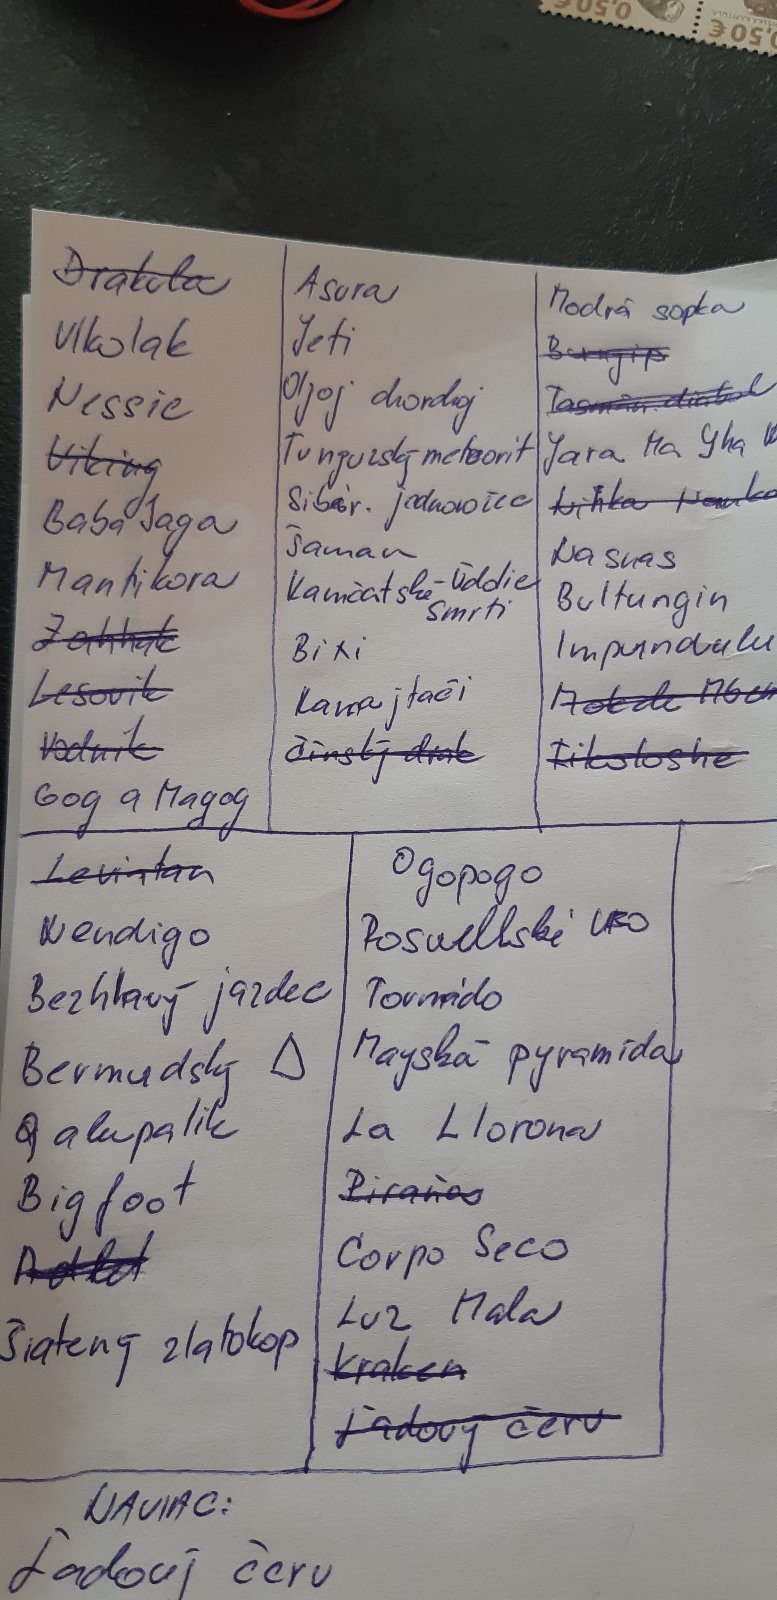 0,50€
0,50€
Drakula
Vlkolak
Nessie
Viking
Baba Jaga
Mantikora
Zahhak
Lesovik
Vodnik
Gog a Magog
Asura
Jeti
Olgoj chorchoj
Tunguzský meteorit
Sibír. jednorožec
Šaman
Kamčatské Údolie
Smrti
Bixi
Kamajtači
Čínský drak
Modrá sopka
Bunyip
Tasmán. diabol
Yara Ma Yha
Nasnas
Bultungin
Impundulu
Mokele Mbem
Tikoloshe
Leviatan
Wendigo
Bezhlavý jazdec
Bermudský Δ
Qalupalik
Bigfoot
Adlet
Šialený zlatokop
Ogopogo
Roswellské UFO
Tornádo
Mayská pyramída
La Llorona
Piraňas
Corpo Seco
Luz Mala
Kraken
Ľadový červ
NAVIAC:
Ľadový červ